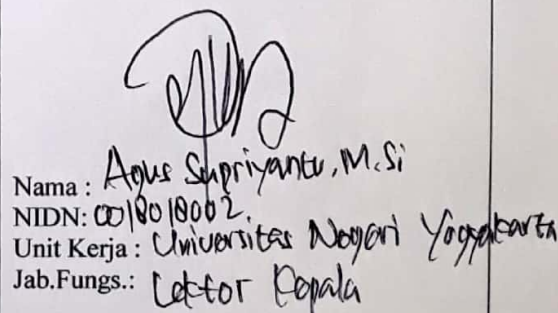 Nama : Agus Supriyanto, M.Si
NIDN: 0018018002.
Unit Kerja : Universitas Negeri Yogyakarta
Jab.Fungs.: Lektor Kepala